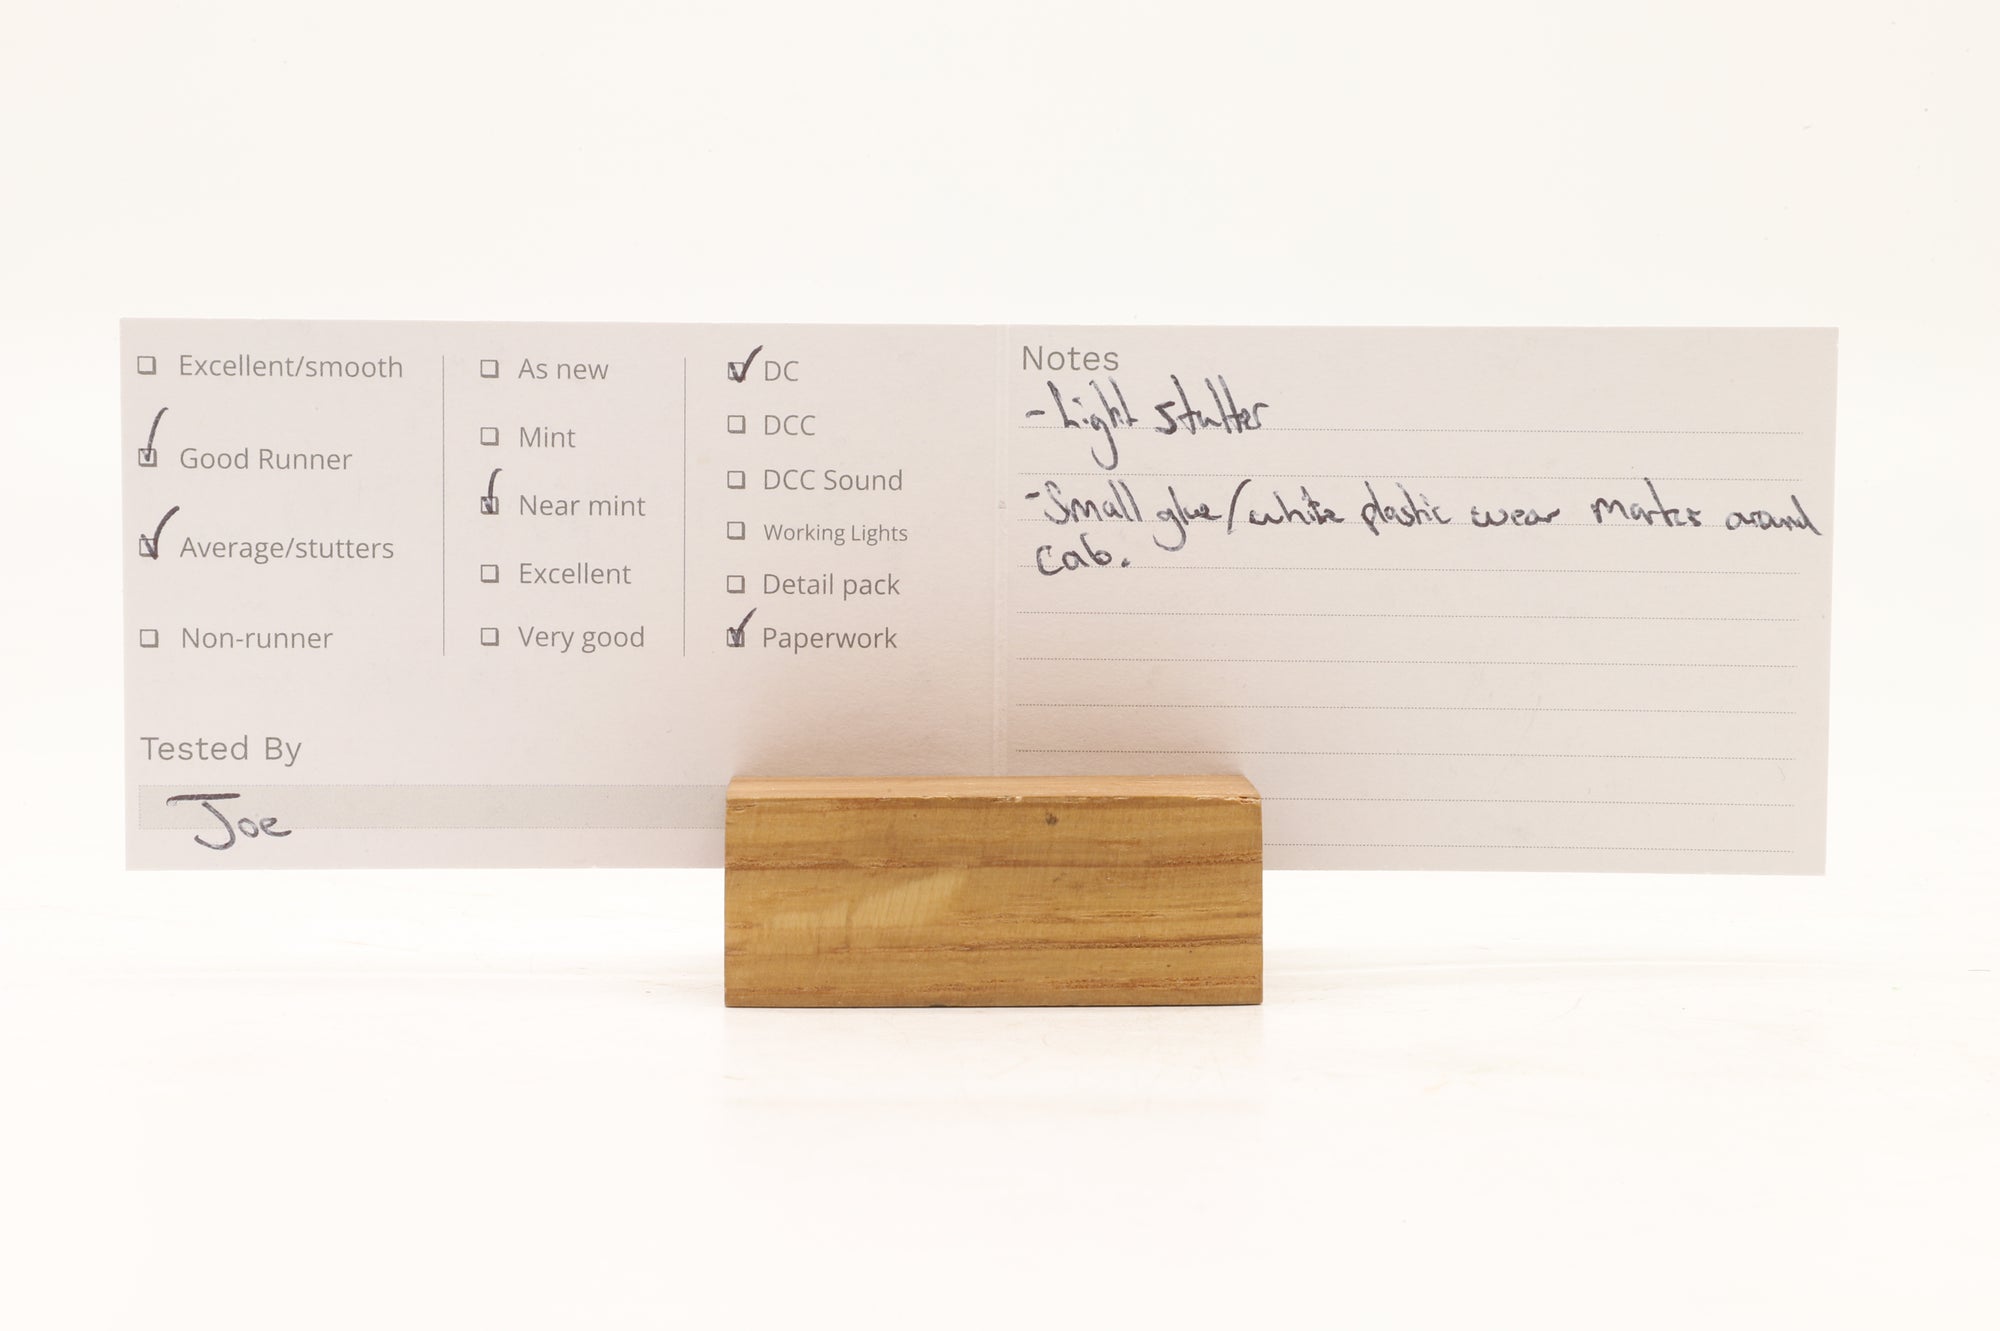 Excellent/smooth
Good Runner
Average/stutters
Non-runner
As new
Mint
Near mint
Excellent
Very good
DC
DCC
DCC Sound
Working Lights
Detail pack
Paperwork
Tested By
Joe
Notes
- Light stutter
- Small glue/white plastic wear marks around
cab.